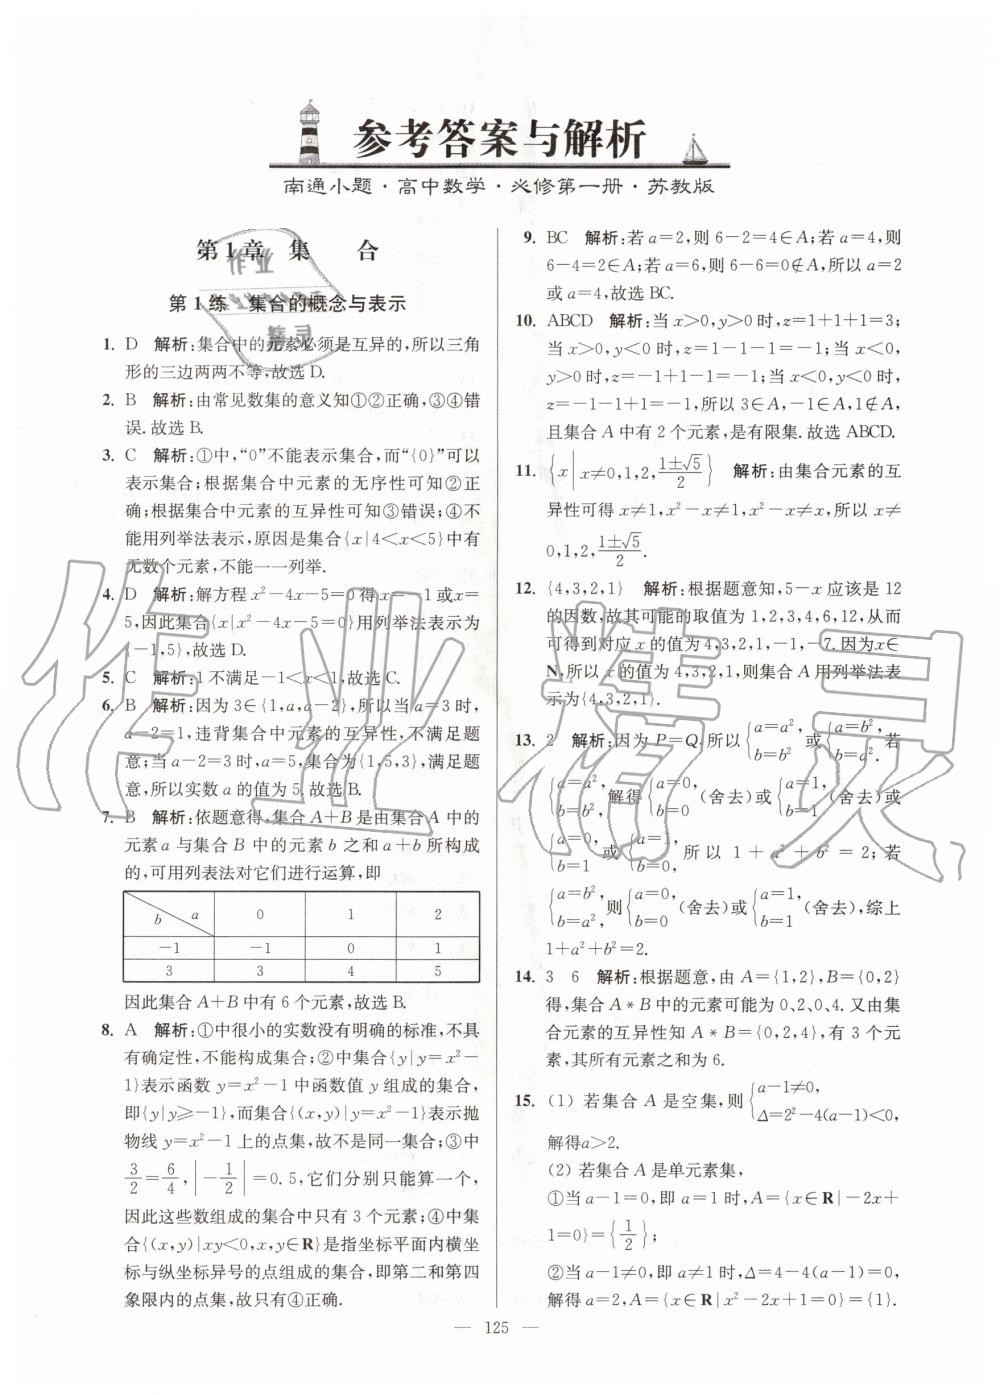 参考答案与解析
南通小题·高中数学·必修第一册·苏教版
第1章 集 合
第1练 集合的概念与表示
1. D 解析:集合中的元素必须是互异的,所以三角
形的三边两两不等,故选D.
2. B 解析:由常见数集的意义知①②正确,③④错
误.故选B.
3. C 解析:①中,“0”不能表示集合,而“{0}”可以
表示集合;根据集合中元素的无序性可知②正
确;根据集合中元素的互异性可知③错误;④不
能用列举法表示,原因是集合{x|4<x<5}中有
无数个元素,不能一一列举.
4. D 解析:解方程x²-4x-5=0得x=-1或x=
5,因此集合{x|x²-4x-5=0}用列举法表示为
{-1,5},故选D.
5. C 解析:1不满足-1<x<1,故选C.
6. B 解析:因为3∈{1,a,a-2},所以当a=3时,
a-2=1,违背集合中元素的互异性,不满足题
意;当a-2=3时,a=5,集合为{1,5,3},满足题
意,所以实数a的值为5.故选B.
7. B 解析:依题意得,集合A+B是由集合A中的
元素a与集合B中的元素b之和a+b所构成
的,可用列表法对它们进行运算,即
b a 0 1 2
-1 -1 0 1
3 3 4 5
因此集合A+B中有6个元素,故选B.
8. A 解析:①中很小的实数没有明确的标准,不具
有确定性,不能构成集合;②中集合{y|y=x²-
1}表示函数y=x²-1中函数值y组成的集合,
即{y|y≥-1},而集合{(x,y)|y=x²-1}表示抛
物线y=x²-1上的点集,故不是同一集合;③中
3/2=6/4,|-1/2|=0.5,它们分别只能算一个,
因此这些数组成的集合中只有3个元素;④中集
合{(x,y)|xy<0,x,y∈R}是指坐标平面内横坐
标与纵坐标异号的点组成的集合,即第二和第四
象限内的点集,故只有④正确.
9. BC 解析:若a=2,则6-2=4∈A;若a=4,则
6-4=2∈A;若a=6,则6-6=0∉A,所以a=2
或a=4,故选BC.
10. ABCD 解析:当x>0,y>0时,z=1+1+1=3;
当x>0,y<0时,z=1-1-1=-1;当x<0,
y>0时,z=-1+1-1=-1;当x<0,y<0时,
z=-1-1+1=-1,所以3∈A,-1∈A,1∉A,
且集合A中有2个元素,是有限集.故选ABCD.
11. {x|x≠0,1,2,(1±√5)/2} 解析:由集合元素的互
异性可得x≠1,x²-x≠1,x²-x≠x,所以x≠
0,1,2,(1±√5)/2.
12. {4,3,2,1} 解析:根据题意知,5-x应该是12
的因数,故其可能的取值为1,2,3,4,6,12,从而
可得到对应x的值为4,3,2,1,-1,-7.因为x∈
N,所以x的值为4,3,2,1,则集合A用列举法表
示为{4,3,2,1}.
13. 2 解析:因为P=Q,所以{a=a², b=b²或{a=b², b=a².若
{a=a², b=b²,解得{a=0, b=0(舍去)或{a=1, b=1(舍去)或
{a=0, b=1或{a=1, b=0,所以1+a²+b²=2;若
{a=b², b=a²,则{a=0, b=0(舍去)或{a=1, b=1(舍去),综上
1+a²+b²=2.
14. 3 6 解析:根据题意,由A={1,2},B={0,2}
得,集合A*B中的元素可能为0,2,0,4.又由集
合元素的互异性知A*B={0,2,4},有3个元
素,其所有元素之和为6.
15. (1) 若集合A是空集,则{a-1≠0, Δ=2²-4(a-1)<0,
解得a>2.
(2) 若集合A是单元素集,
①当a-1=0,即a=1时,A={x∈R|-2x+
1=0}={1/2};
②当a-1≠0,即a≠1时,Δ=4-4(a-1)=0,
解得a=2,A={x∈R|x²-2x+1=0}={1}.
— 125 —
作业精灵